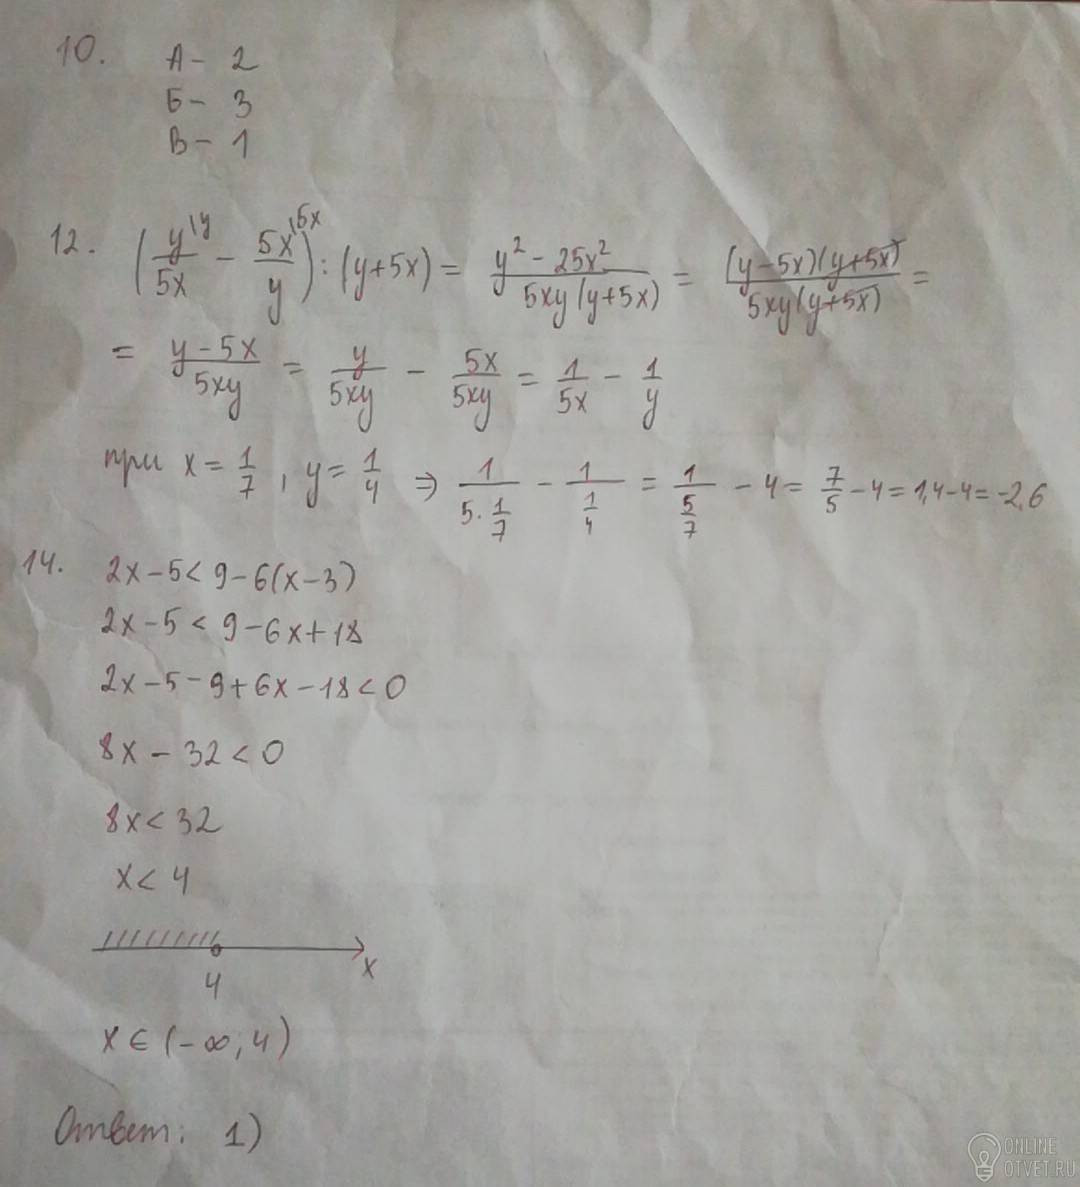 10. А - 2
Б - 3
В - 1
12. (y/5x |y - 5x/y |5x) : (y+5x) = (y² - 25x²)/(5xy(y+5x)) = ((y-5x)(y+5x))/(5xy(y+5x)) =
= (y-5x)/(5xy) = y/(5xy) - 5x/(5xy) = 1/(5x) - 1/y
при x = 1/7, y = 1/4 ⇒ 1/(5·1/7) - 1/(1/4) = 1/(5/7) - 4 = 7/5 - 4 = 1,4 - 4 = -2,6
14. 2x - 5 < 9 - 6(x - 3)
2x - 5 < 9 - 6x + 18
2x - 5 - 9 + 6x - 18 < 0
8x - 32 < 0
8x < 32
x < 4
4 x
x ∈ (-∞; 4)
Ответ: 1)
ONLINE
OTVET.RU